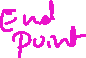 End
Point